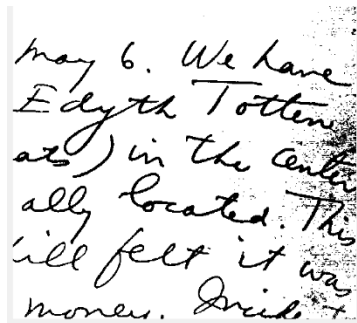 may 6. We have
Edyth Totten
ats) in the center
ally located. This
ill felt it was
money.